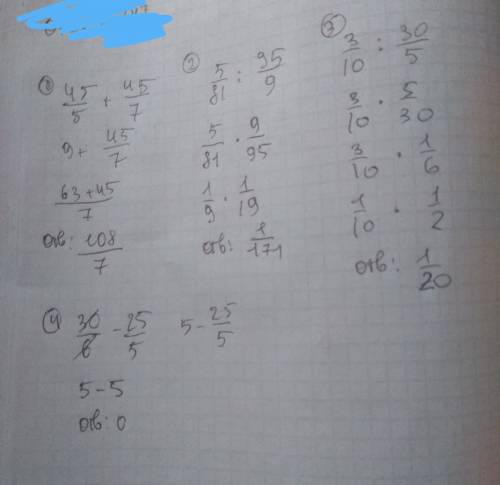 ① 45/5 + 45/7
9 + 45/7
63+45/7
отв: 108/7
② 5/81 : 95/9
5/81 · 9/95
1/9 · 1/19
отв: 1/171
③ 3/10 : 30/5
3/10 · 5/30
3/10 · 1/6
1/10 · 1/2
отв: 1/20
④ 30/6 - 25/5   5 - 25/5
5 - 5
отв: 0